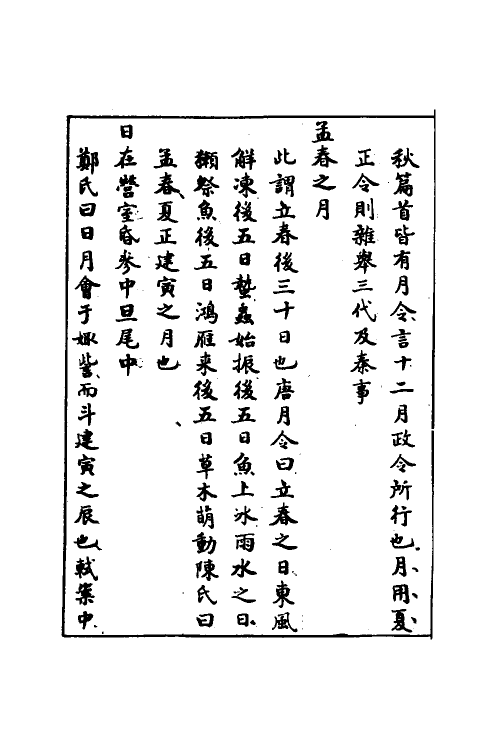 秋篇首皆有月令言十二月政令所行也月用夏
正令則雜舉三代及秦事
孟春之月
此謂立春後三十日也唐月令曰立春之日東風
解凍後五日蟄蟲始振後五日魚上冰雨水之日
獺祭魚後五日鴻雁来後五日草木萌動陳氏曰
孟春夏正建寅之月也
日在營室昏參中旦尾中
鄭氏曰日月會于娵訾而斗建寅之辰也軾案中